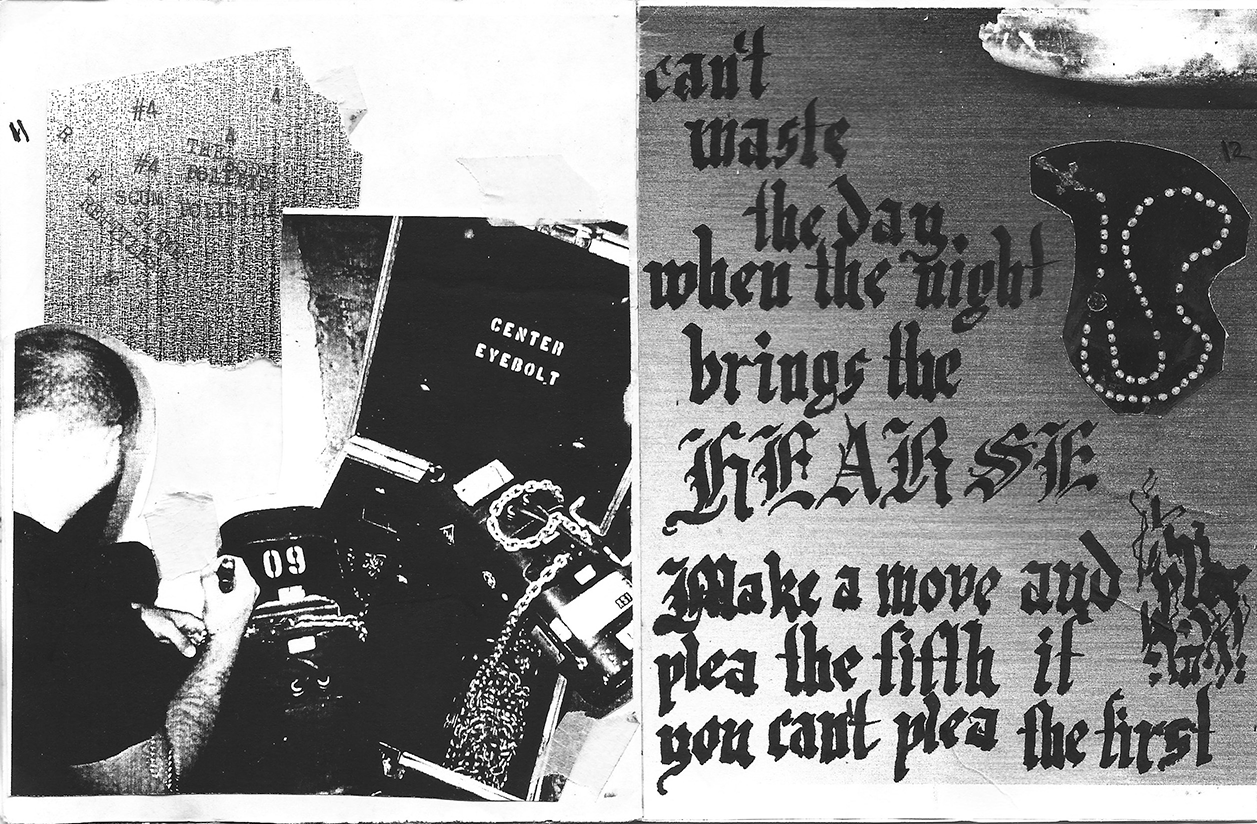 11
#4
4
4
#4
SCUM
CENTER
EYEBOLT
09
12
can't
waste
the day.
when the night
brings the
HEARSE
Make a move and
plea the fifth if
you can't plea the first